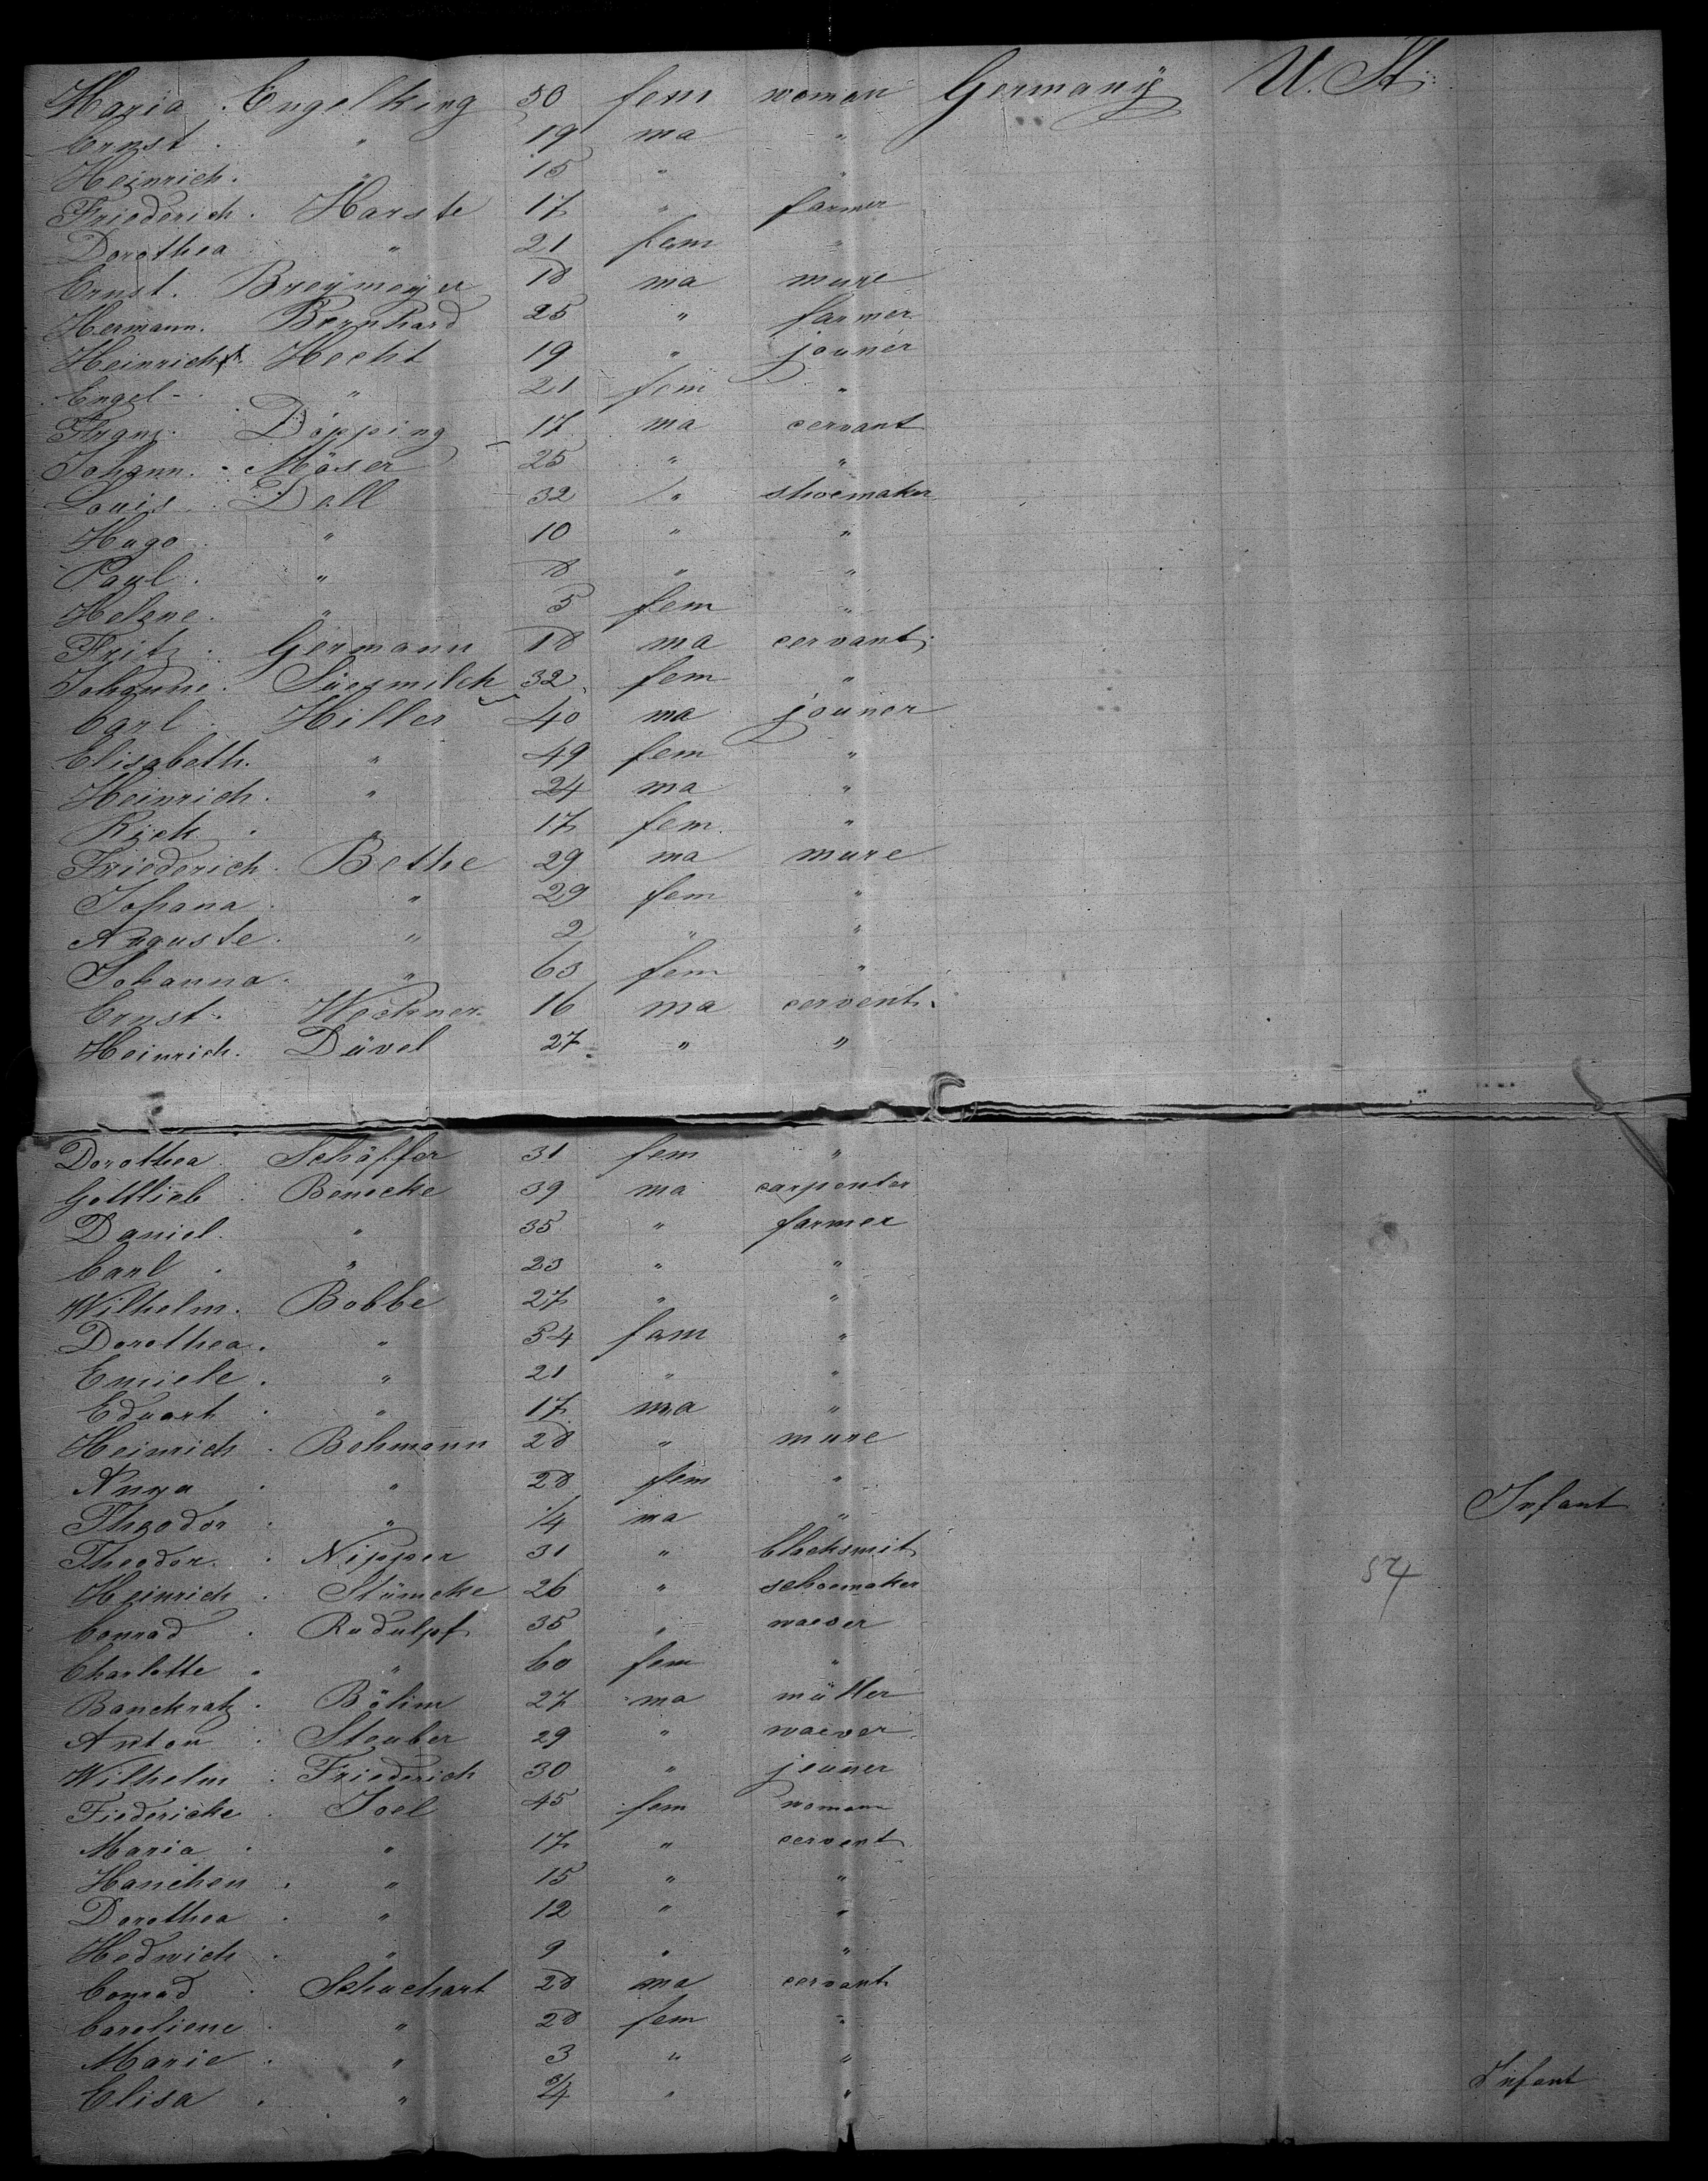 Maria . Engelking 50 fem woman Germany U. St.
Ernst . " 19 ma "
Heinrich . " 15 " "
Friederich . Harste 17 " farmer
Dorothea " 21 fem "
Ernst . Breymeyer 18 ma mure
Hermann . Bernhard 25 " farmer
Heinrich . Hecht 19 " jouner
Engel - " 21 fem "
Franz . Döpping 17 ma cervant
Johann . Möser 25 " "
Louis . Dell 32 " shoemaker
Hugo . " 10 " "
Paul . " 8 " "
Helene . " 5 fem "
Fritz . Germann 18 ma cervant
Johanne . Süssmilch 32 fem "
Carl . Hiller 40 ma jouner
Elisabeth . " 49 fem "
Heinrich . " 24 ma "
Rick . " 17 fem "
Friederich . Bethe 29 ma mure
Johana . " 29 fem "
Auguste . " 2 " "
Johanna . " 63 fem "
Ernst . Wechner 16 ma cervent
Heinrich . Düvel 27 " "
Dorothea . Schäffer 31 fem "
Gottlieb . Benecke 39 ma carpenter
Daniel . " 35 " farmer
Carl . " 23 " "
Wilhelm . Bobbe 27 " "
Dorothea . " 54 fem "
Emiele . " 21 " "
Eduart . " 17 ma "
Heinrich . Bohmann 28 " mure
Anna . " 28 fem "
Theodor . " 1/4 ma " Infant
Theodor . Nipper 31 " blacksmit
Heinrich . Stümcke 26 " schoemaker 54
Conrad . Rudulpf 35 " waever
Charlotte . " 60 fem "
Banckratz . Böhm 27 ma müller
Anton . Steuber 29 " waever
Wilhelm . Friederich 30 " jouner
Fiedericke . Joel 45 fem woman
Maria . " 17 " cervent
Hanchen . " 15 " "
Dorothea . " 12 " "
Hedwich . " 9 " "
Conrad . Schuchart 28 ma cervant
Caroliene . " 28 fem "
Marie . " 3 " "
Elisa . " 3/4 " " Infant